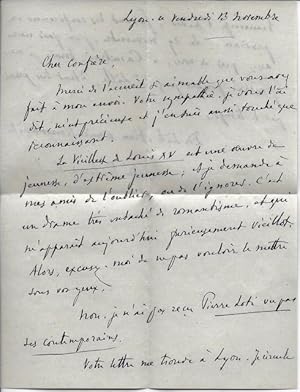 Lyon - ce Vendredi 13 Novembre
Cher Confrère,
Merci de l'accueil si aimable que vous avez
fait à mon envoi. Votre sympathie, je vous l'ai
dit, m'est précieuse et j'en suis aussi touché que
reconnaissant.
La Vieillesse de Louis XV est une œuvre de
jeunesse, d'extrême jeunesse, et je demande à
mes amis de l'oublier, ou de l'ignorer. C'est
un drame très entaché de romantisme, et qui
m'apparaît aujourd'hui furieusement vieillot.
Alors, excusez-moi de ne pas vouloir le mettre
sous vos yeux.
Non, je n'ai pas reçu Pierre Loti vu par
ses contemporains.
Votre lettre me trouve à Lyon.